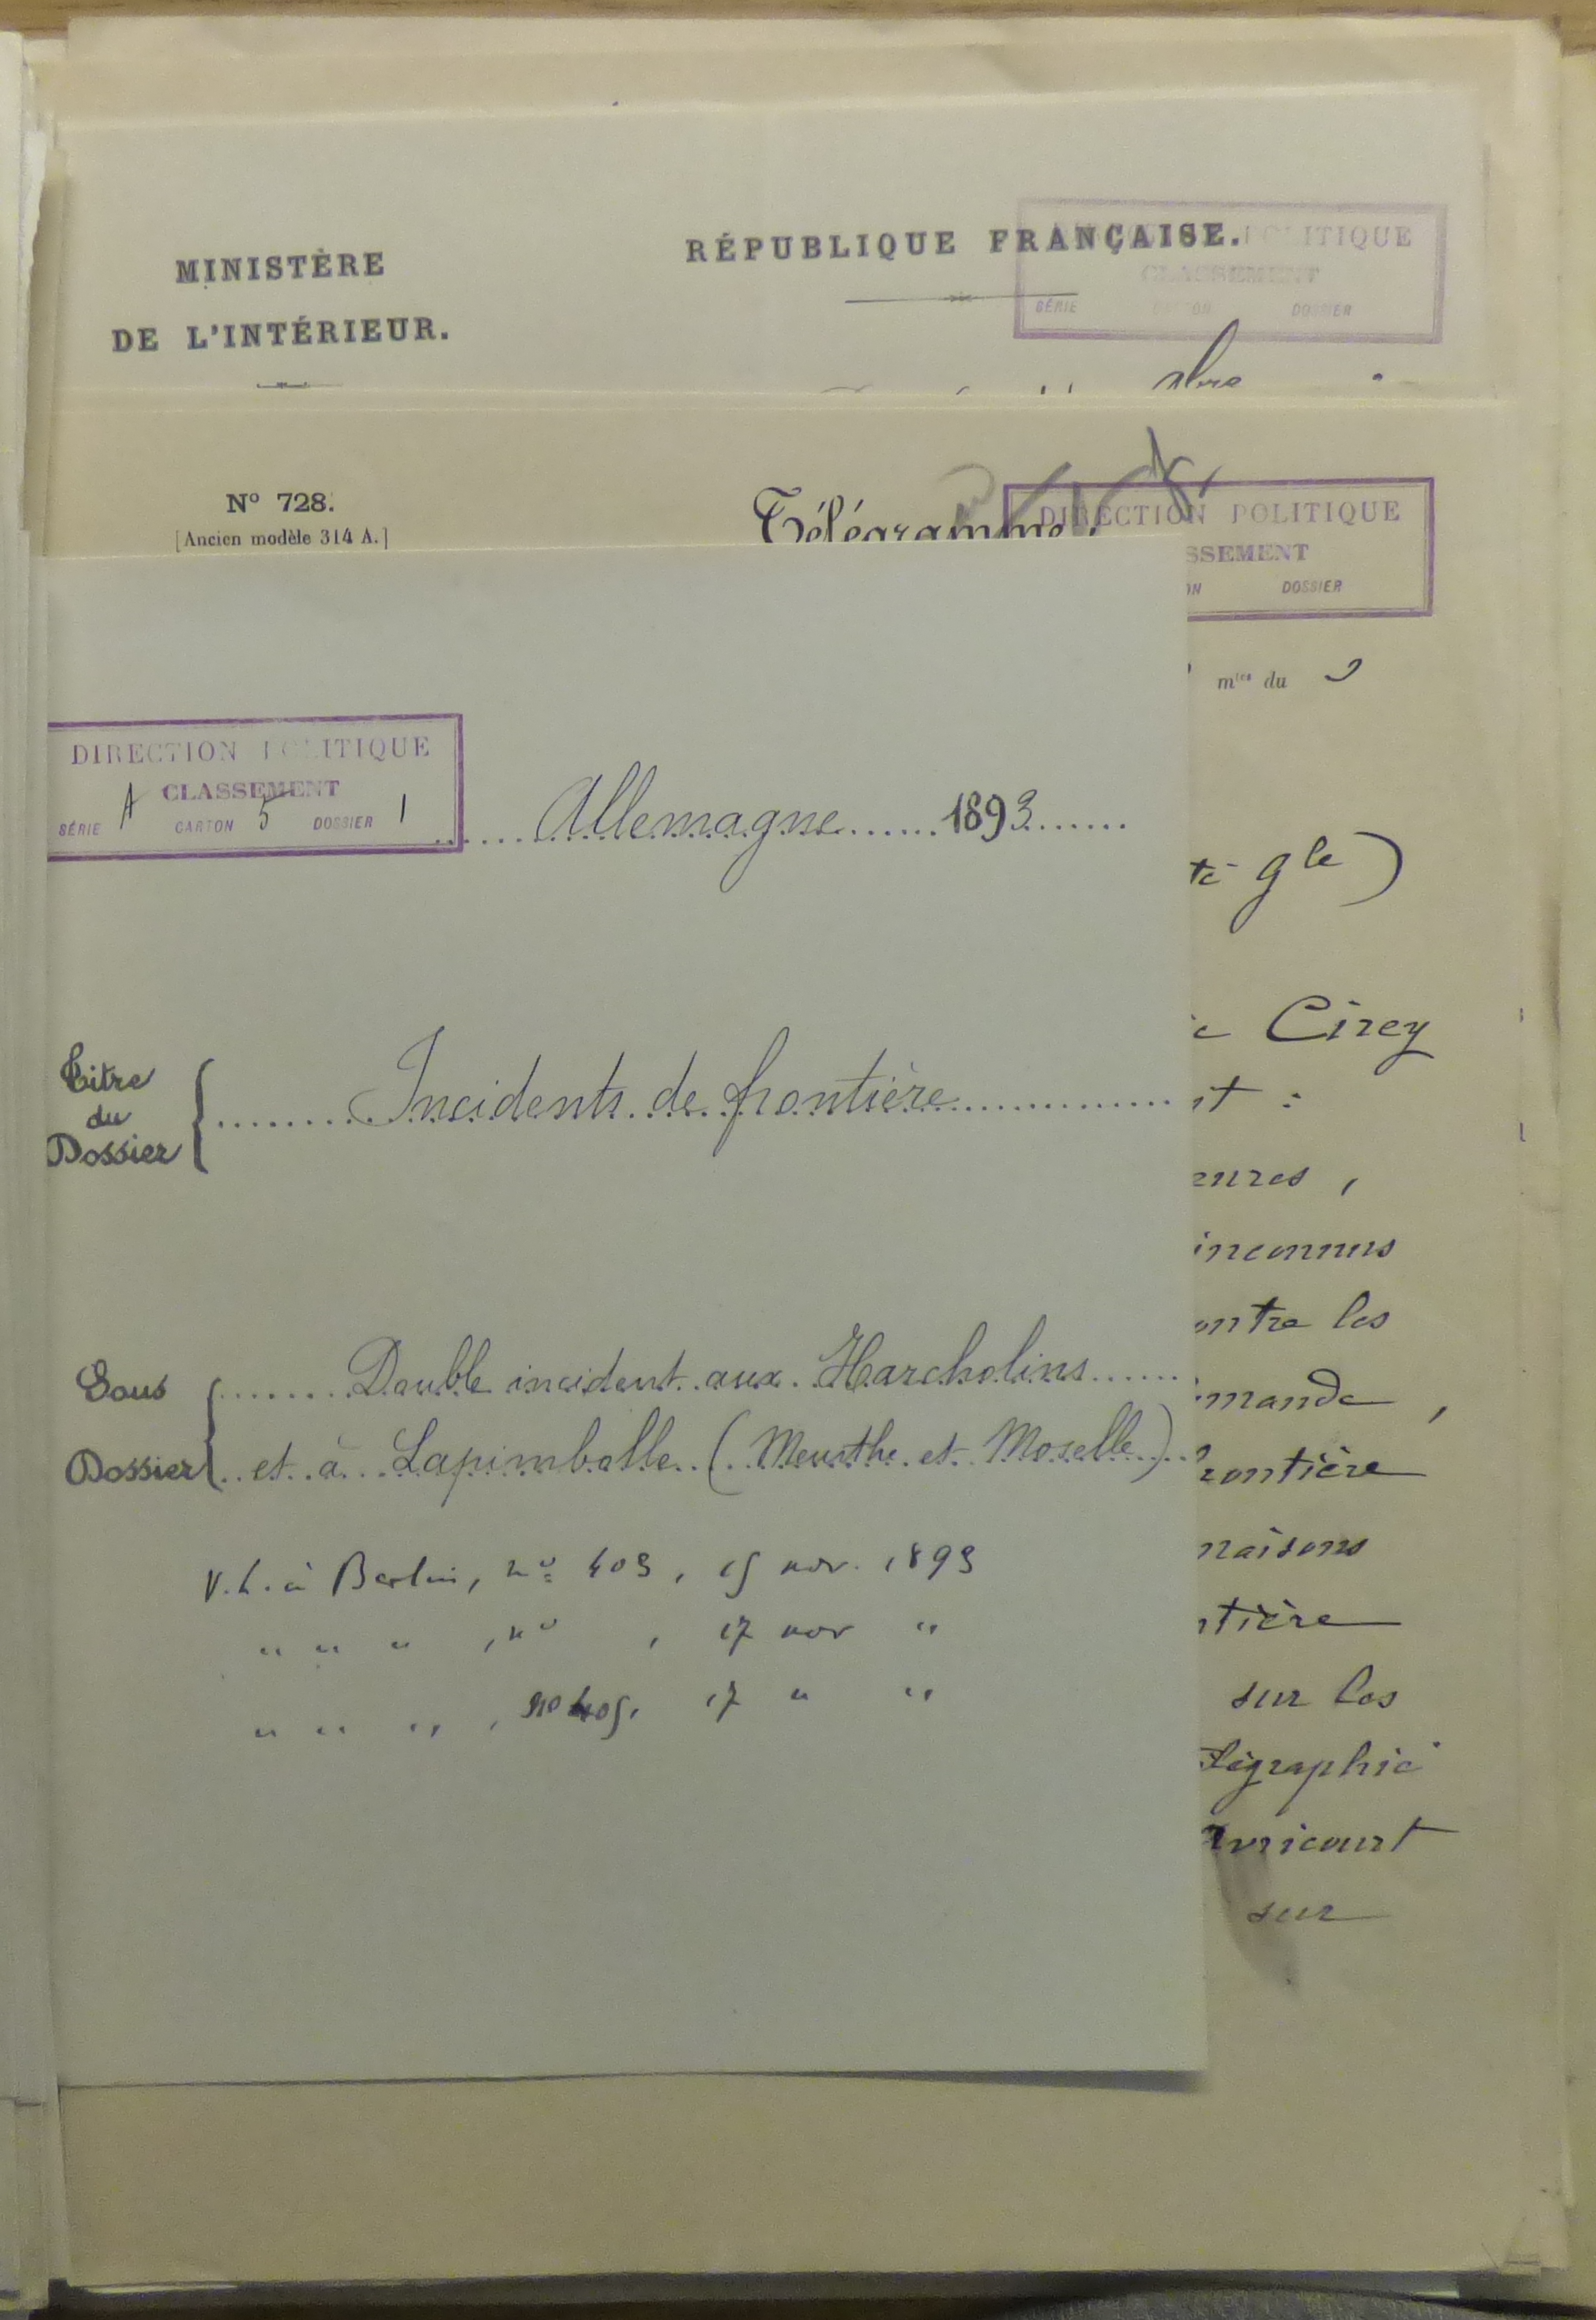 MINISTÈRE
DE L'INTÉRIEUR.
RÉPUBLIQUE FRANÇAISE.
POLITIQUE
CLASSEMENT
SÉRIE CARTON DOSSIER
N° 728.
[Ancien modèle 314 A.]
Télégramme.
DIRECTION POLITIQUE
SSEMENT
ON DOSSIER
mtes du
DIRECTION POLITIQUE
CLASSEMENT
SÉRIE A CARTON 5 DOSSIER 1
Allemagne 1893
té gle)
Cirey
it :
eures,
inconnus
ontre les
mande,
rontière
maisons
ntière
sur les
légraphié
Avricourt
sur
Titre
du
Dossier
Incidents de frontière
Sous
Dossier
Double incident aux Harcholins
et à Lapimbolle (Meurthe et Moselle)
V. L. à Berlin, n° 403, 15 nov. 1893
" " " , n° , 17 nov "
" " " , n° 405, 17 " "